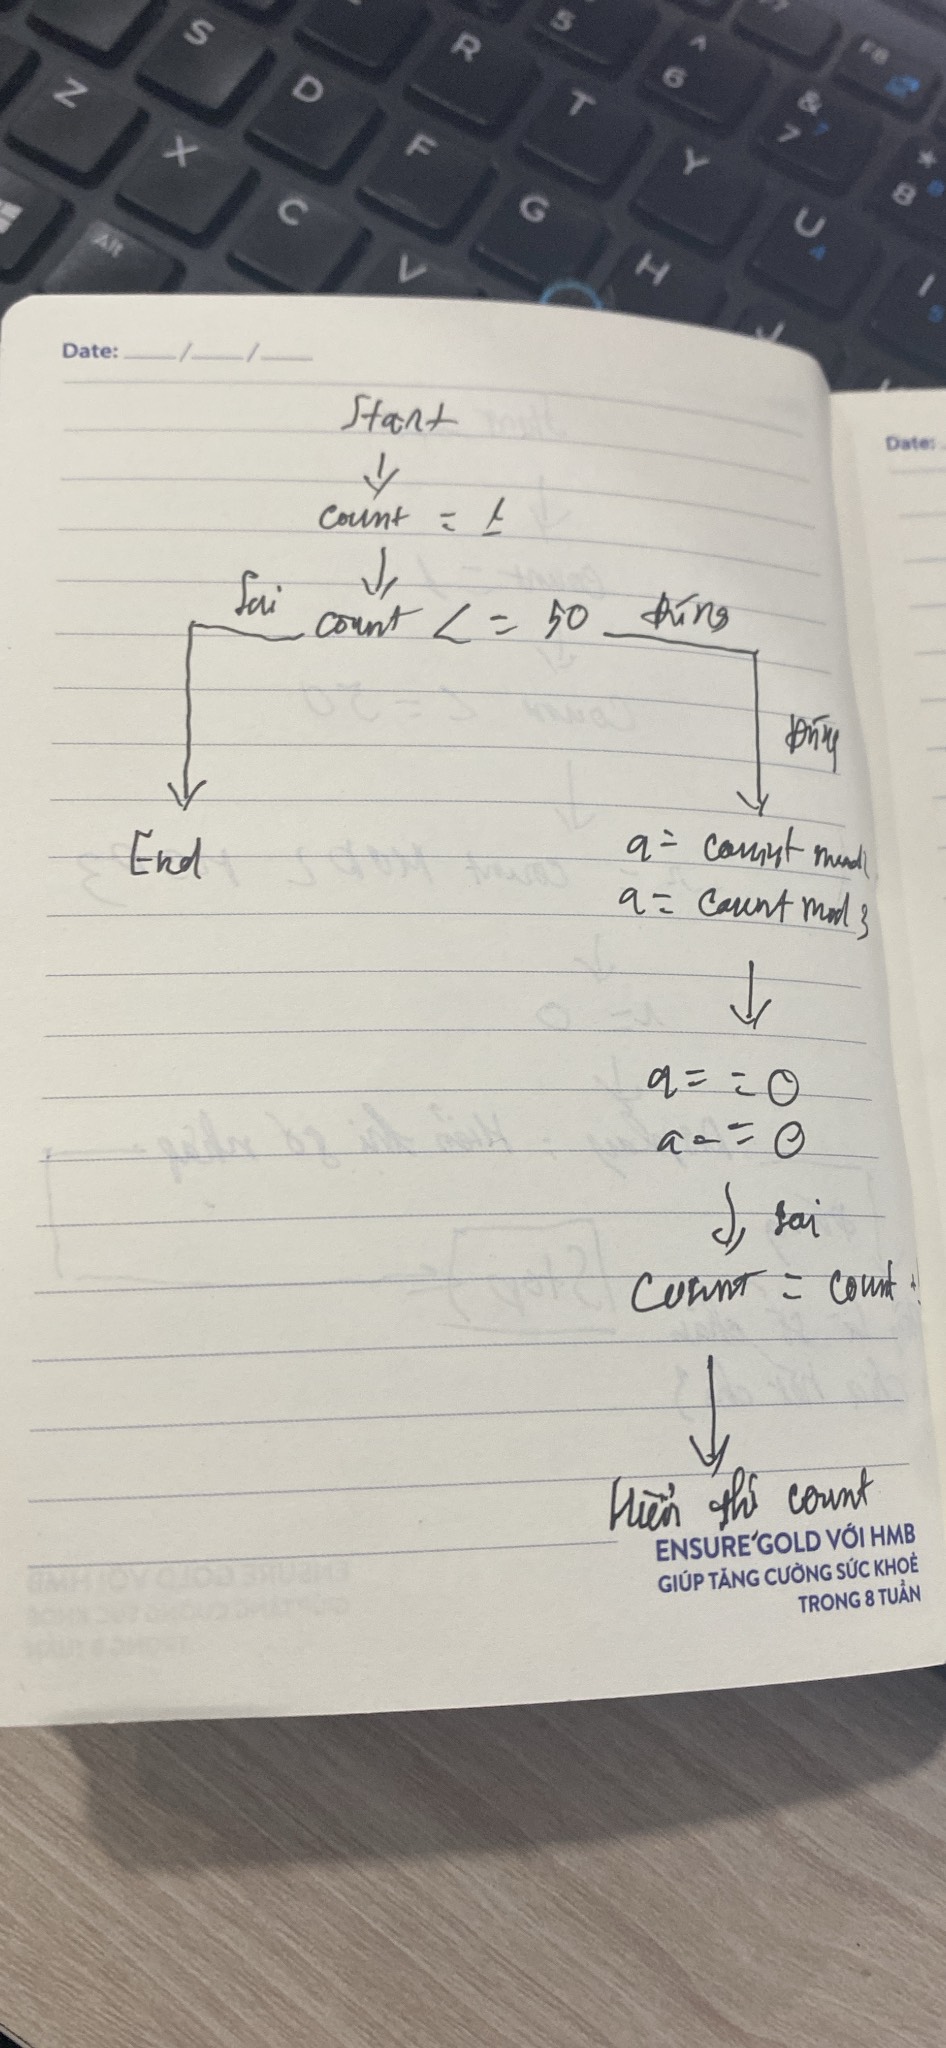 S
R
5
^
6
F8
Z
D
T
&
7
X
F
Y
*
8
C
G
U
4
Alt
V
H
I
5
J
Date: ___/___/___
Date:
Start
count = 1
Sai
count <= 50
Đúng
Đúng
a = count mod
a = count mod 3
a = = 0
a = = 0
sai
Count = count +
Hiển thị count
ENSURE GOLD VỚI HMB
GIÚP TĂNG CƯỜNG SỨC KHOẺ
TRONG 8 TUẦN
End